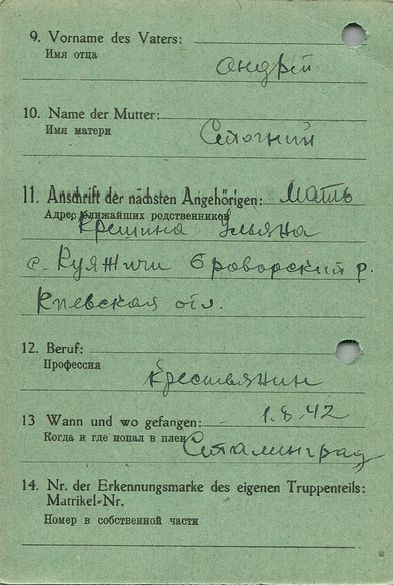 9. Vorname des Vaters:
Имя отца
Андрей
10. Name der Mutter:
Имя матери
Стогний
11. Anschrift der nächsten Angehörigen: Мать
Адрес ближайших родственников
Крешина Ульяна
с. Кулжичи Броворский р.
Киевская отл.
12. Beruf:
Профессия
Крестьянин
13 Wann und wo gefangen: 1.8.42
Когда и где попал в плен Сталинград
14. Nr. der Erkennungsmarke des eigenen Truppenteils:
Matrikel-Nr.
Номер в собственной части